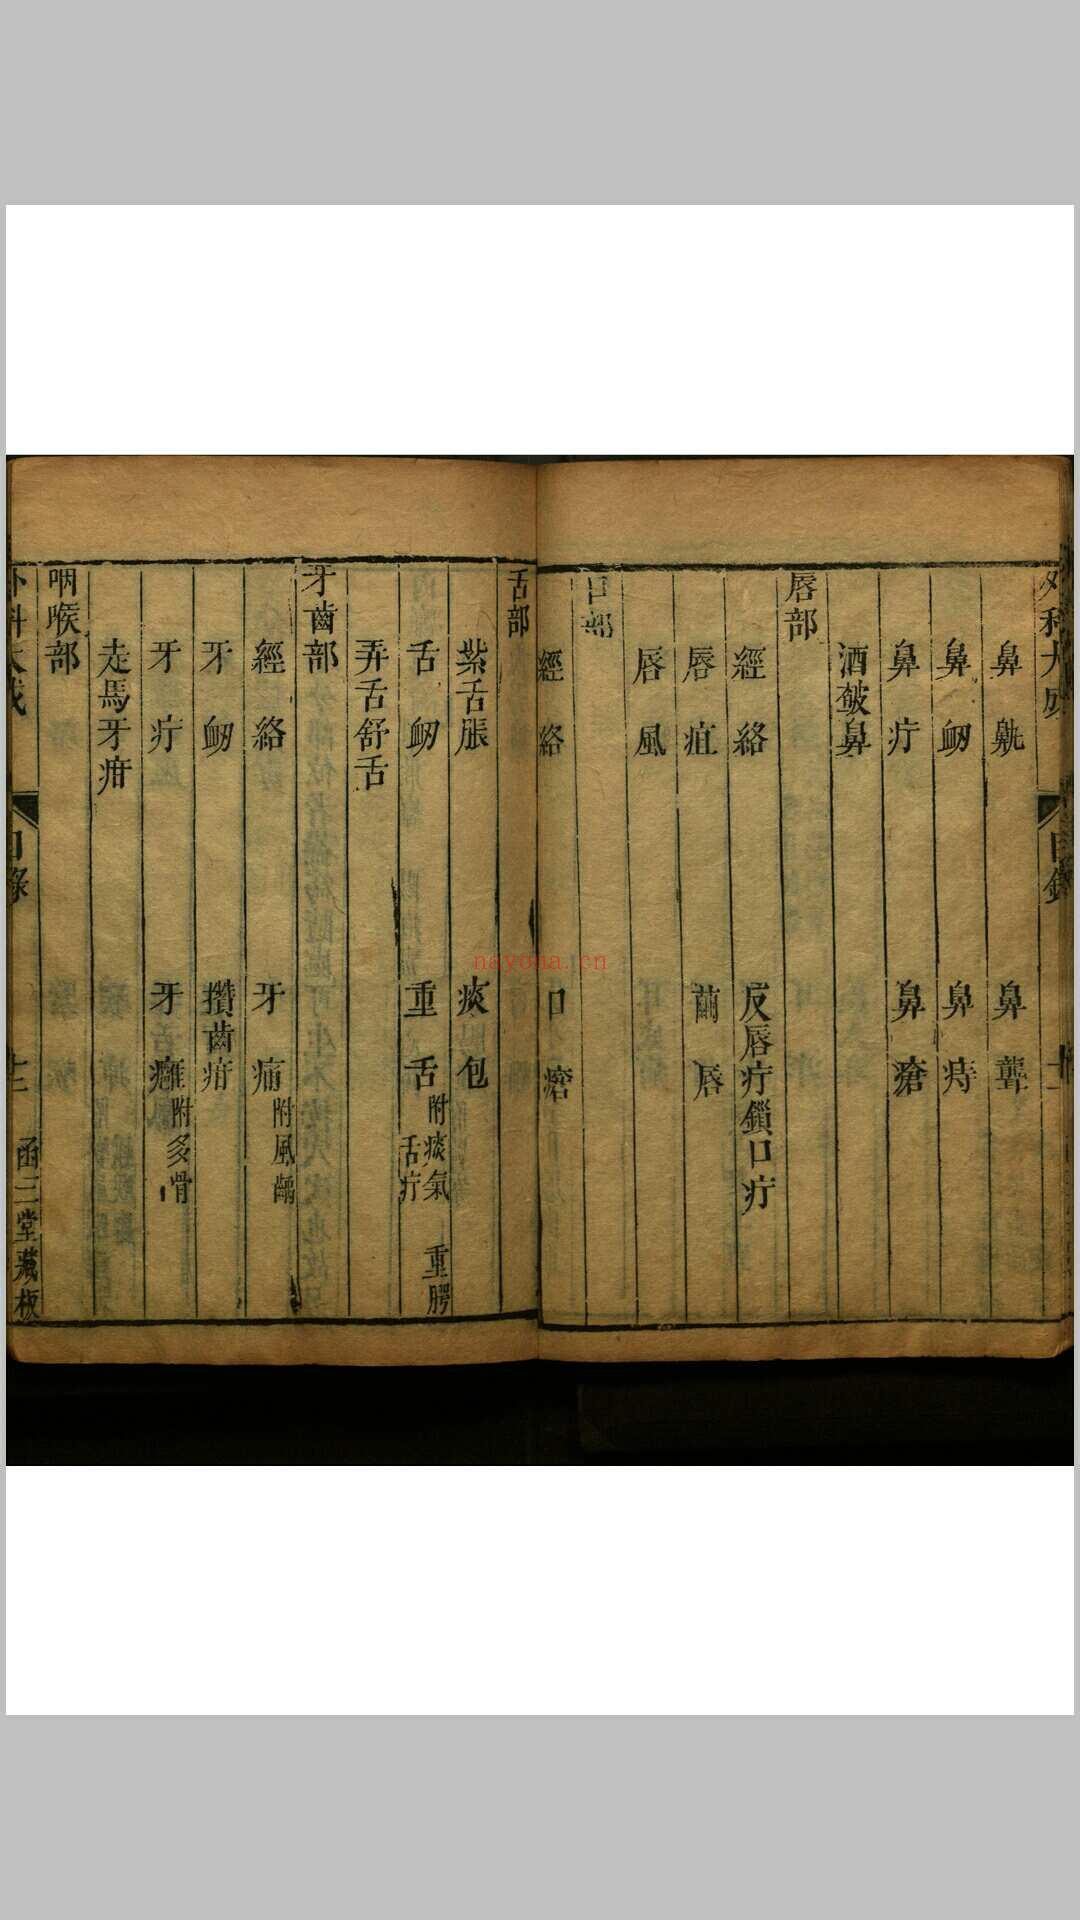 外科大成 目錄
鼻齆 鼻聾
鼻衂 鼻痔
鼻疔 鼻瘡
酒皶鼻
唇部
經絡 反唇疔鎖口疔
唇疽 繭唇
唇風
口部
經絡 口瘡
舌部
紫舌脹 痰包
舌衂 重舌 附痰氣 重腭 舌疔
弄舌舒舌
牙齒部
經絡 牙痛 附風齲
牙衂 攢齒疳
牙疔 牙癰 附多骨
走馬牙疳
咽喉部
外科大成 目錄 十二 函三堂藏板
nayona.cn